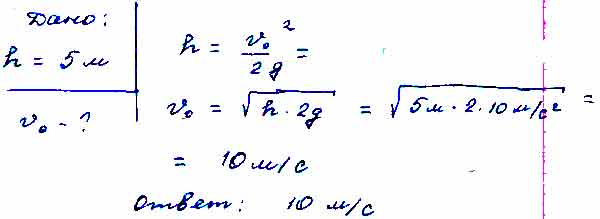 Дано:
h = 5 м
v₀ - ?
h = v₀²/2g =
v₀ = √(h · 2g) = √(5м · 2 · 10 м/с²) =
= 10 м/с
Ответ: 10 м/с